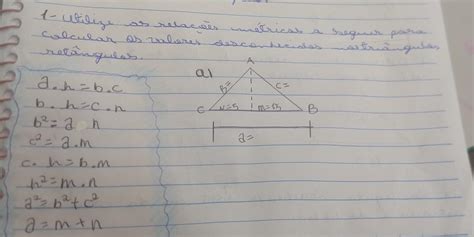 1- Utilize as relações métricas a seguir para
calcular os valores desconhecidos nos triângulos
retângulos.
a)
A
b= c=
C n=5 m=5 B
a=
a.h=b.c
b.h=c.n
b²=a n
c²=a.m
c.h=b.m
h²=m.n
a²=b²+c²
a=m+n